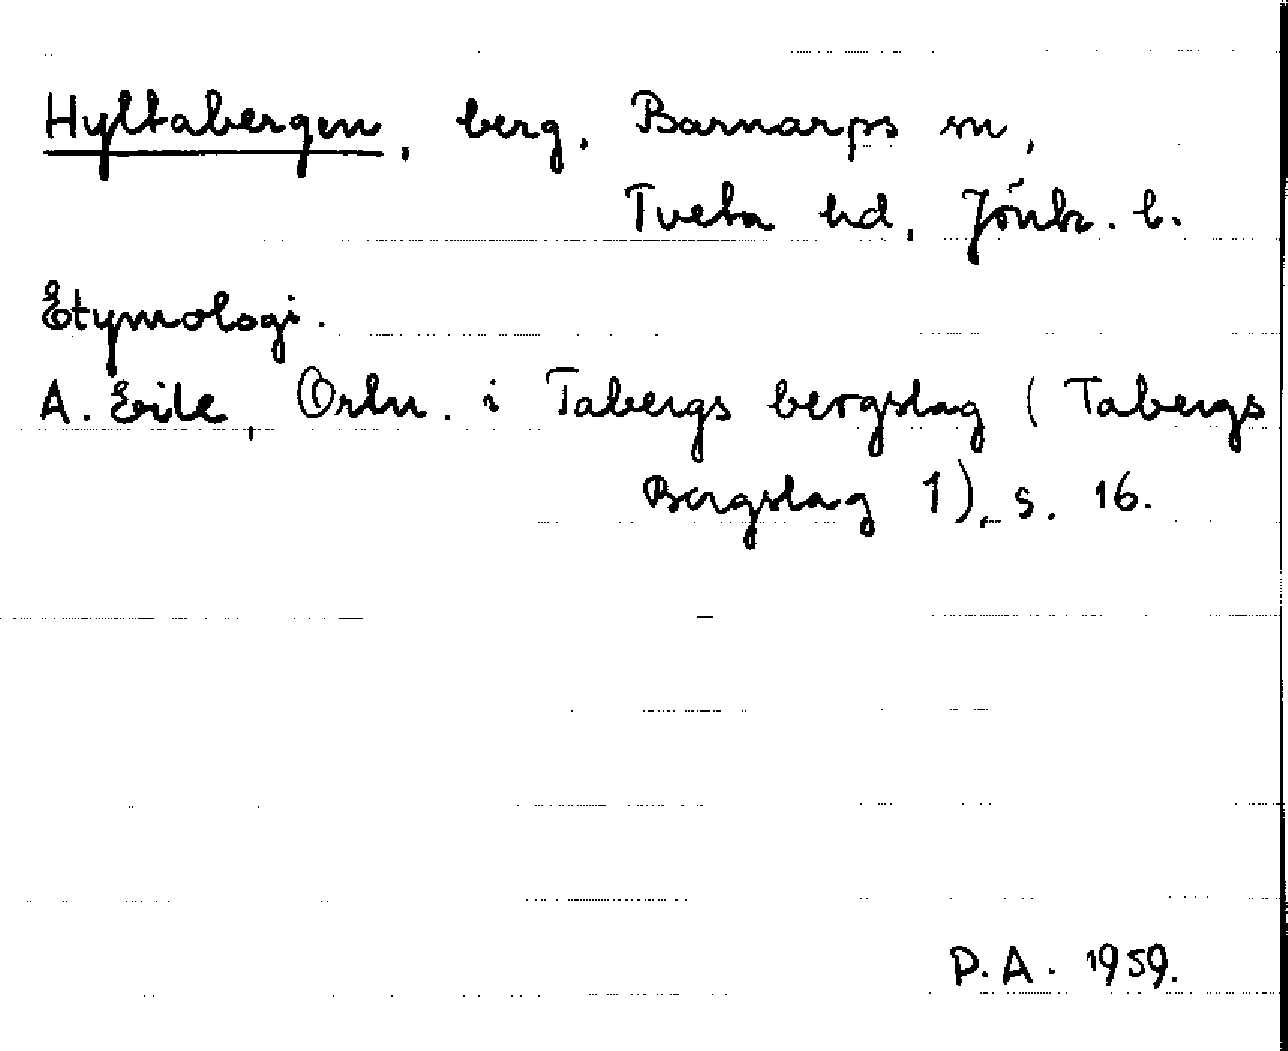 Hyltabergen, berg, Barnarps sn,
Tveta hd, Jönk. l.
Etymologi.
A. Ejde, Ortn. i Tabergs bergslag (Tabergs
Bergslag 1), s. 16.
P.A. 1959.